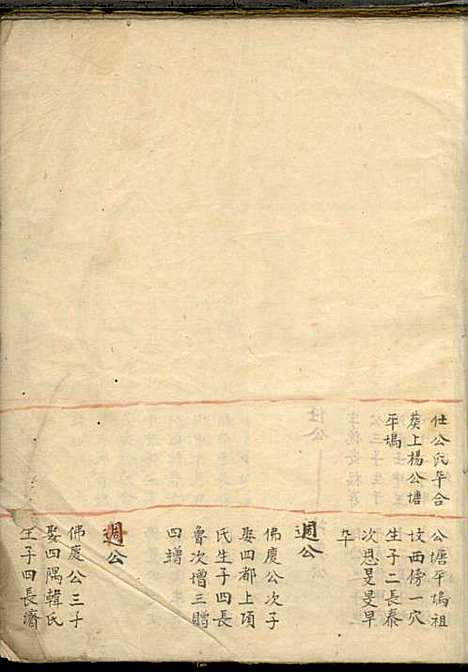 仕公氏卒合
葵上楊公塘
平塢
公塘平塢祖
坟西傍一穴
生子二長泰
次思旻旻早
卒
週公
佛慶公次子
娶四都上項
氏生子四長
魯次增三贈
四增
週公
佛慶公三子
娶四隅韓氏
生子四長濟